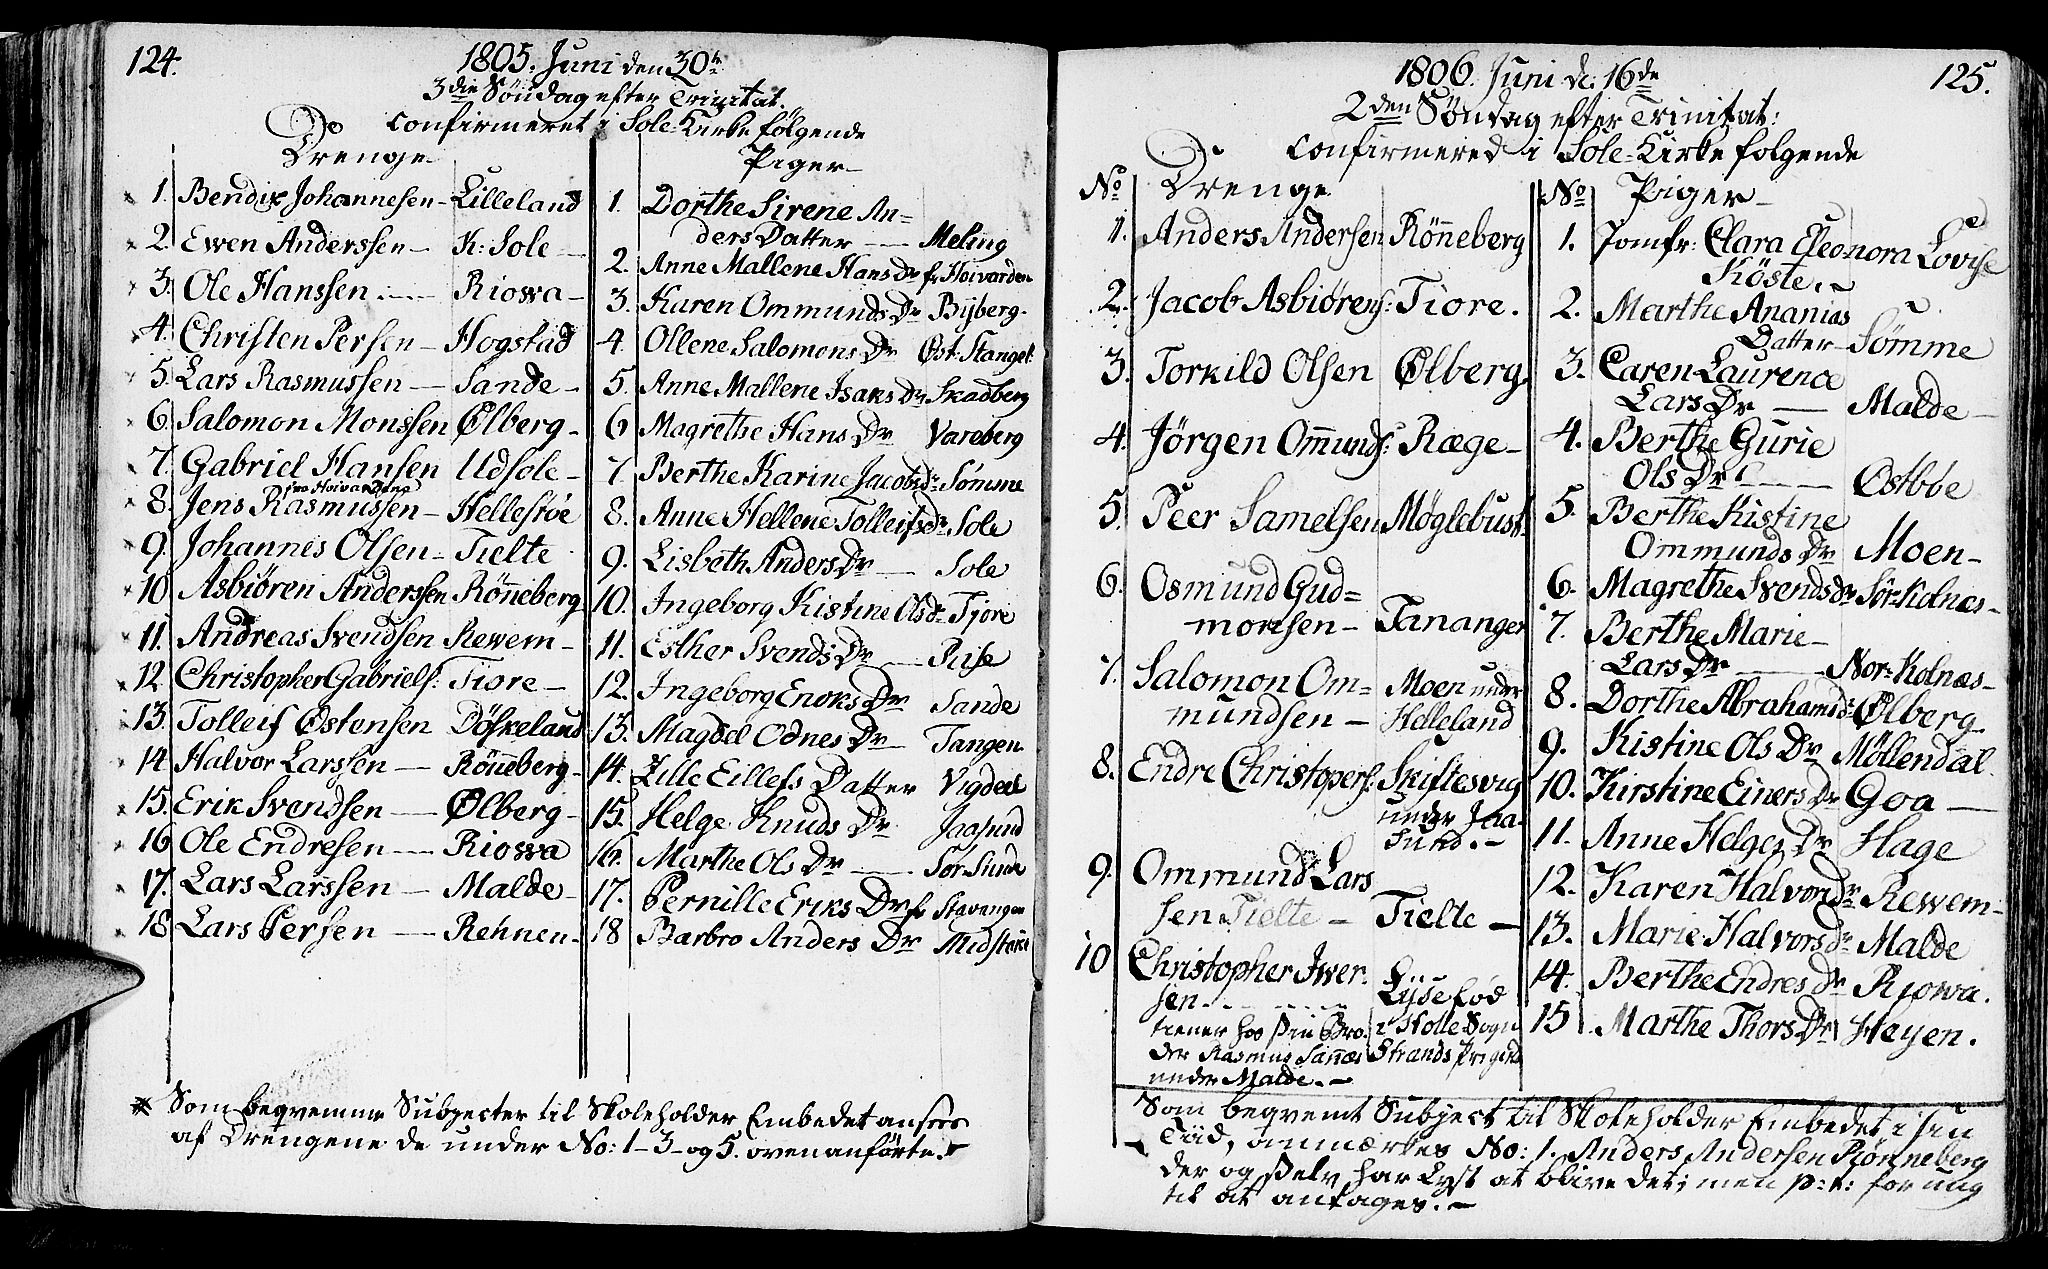 124.
1805. Juni den 30te
3die Söndag efter Trinitat.
Confirmeret i Sole-Kirke følgende
Drenge
1. Bendix Johannesen - Lilleland
2. Ewen Anderssen - K: Sole
3. Ole Hanssen - Riowa
4. Christen Persen - Hogstad
5. Lars Rasmussen - Sande
6. Salomon Monssen Ølberg
7. Gabriel Hansen Udsole
fra Hoivardene
8. Jens Rasmussen - Hellestöe
9. Johannes Olsen - Tielte
10. Asbiören Anderssen Rönneberg
11. Andreas Svendsen Rewem
12. Christopher Gabriels: Tiore
13. Tolleif Østensen Döskeland
14. Halvor Larssen - Rönneberg
15. Erik Svendsen - Ølberg
16. Ole Endresen - Riowa
17. Lars Larssen - Malde
18. Lars Persen - Rehnen
Piger
1. Dorthe Sirene An=
ders Datter - Meling
2. Anne Mallene Hans Dr fr Hoivarden
3. Karen Ommunds Dr Byberg
4. Ollene Salomons Dr Øst: Stangel
5. Anne Mallene Isaks Dr Skadberg
6. Magrethe Hans Dr Vareberg
7. Berthe Karine Jacobsdr Sömme
8. Anne Hellene Tolleifsdr Sole
9. Lisbeth Anders Dr - Sole
10. Ingeborg Kistine Olsdr Tjore
11. Esther Svends Dr
12. Ingeborg Enoks Dr Sande
13. Magdel Odnes Dr Tangen
14. Zille Eillefs Datter Vigdeel
15. Helge Knuds Dr Jaasund
16. Marthe Ols Dr - Sör Sunde
17. Pernille Eriks Dr fr Stavanger
18. Barbro Anders Dr
* Som beqvemme Subjecter til Skoleholder Embedet ansees
af Drengene de under No: 1-3-og 5. ovenanførte.
1806. Juni d: 16de
125.
2den Söndag efter Trinitat:
Confirmered i Sole-Kirke følgende
No Drenge
1. Anders Andersen Rönneberg
2. Jacob Asbiörens: Tiore.
3. Torkild Olsen Ølberg
4. Jörgen Ommunds: Ræge
5. Peer Samelsen Möglebust
6. Osmund Gud=
monsen - Tananger
7. Salomon Om= Moen under
mundsen - Helleland
8. Endre Christopers: Skiftesvig
under Jaa-
sund.
9. Ommund Lars
sen Tielte - Tielte
10 Christopher Iwer-
sen Lyse fød
tiener hos sin Bro- i Holle Sogn
der Rasmus Sannes Strands Prægield
under Malde.
No Piger
1. Jomfr: Clara Eleonora Lovise
Köste.
2. Marthe Ananias
Datter Sömme
3. Caren Laurence
Lars Dr - Malde
4. Berthe Gurie
Ols Dr - Østböe
5. Berthe Kistine
Ommunds Dr Moen
6. Magrethe Svendsdr Sör-Kolnæs
7. Berthe Marie
Lars Dr - Nor-Kolnæs
8. Dorthe Abrahamsdr Ølberg
9. Kistine Ols Dr Möllendal
10. Kirstine Einers Dr Goa
11. Anne Helges Dr Hage
12. Karen Halvorsdr Rewem
13. Marie Halvorsdr Malde
14. Berthe Endres Dr Rjowa.
15. Marthe Thors Dr Heyen.
Som beqvemt Subject til Skoleholder Embedet i sin
Tiid, anmærkes No: 1. Anders Andersen Rönneberg
der og selv har Lyst at blive det; men p: t: for ung
til at antages.